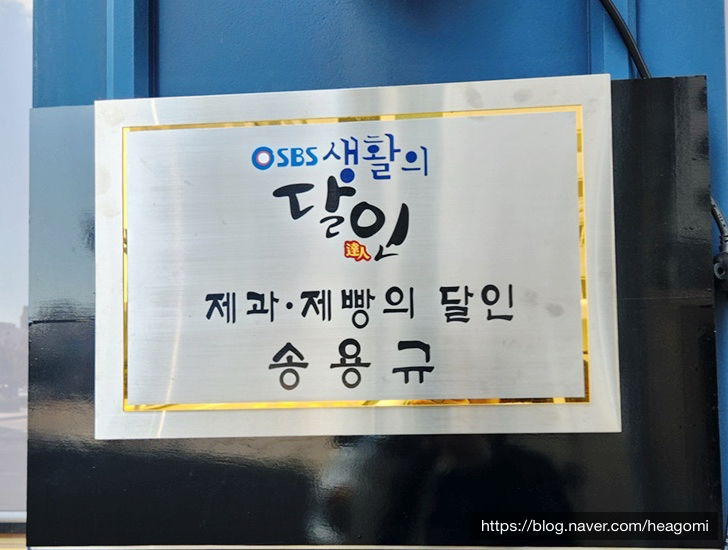 SBS 생활의
달인
達人
제과·제빵의 달인
송용규
https://blog.naver.com/heagomi